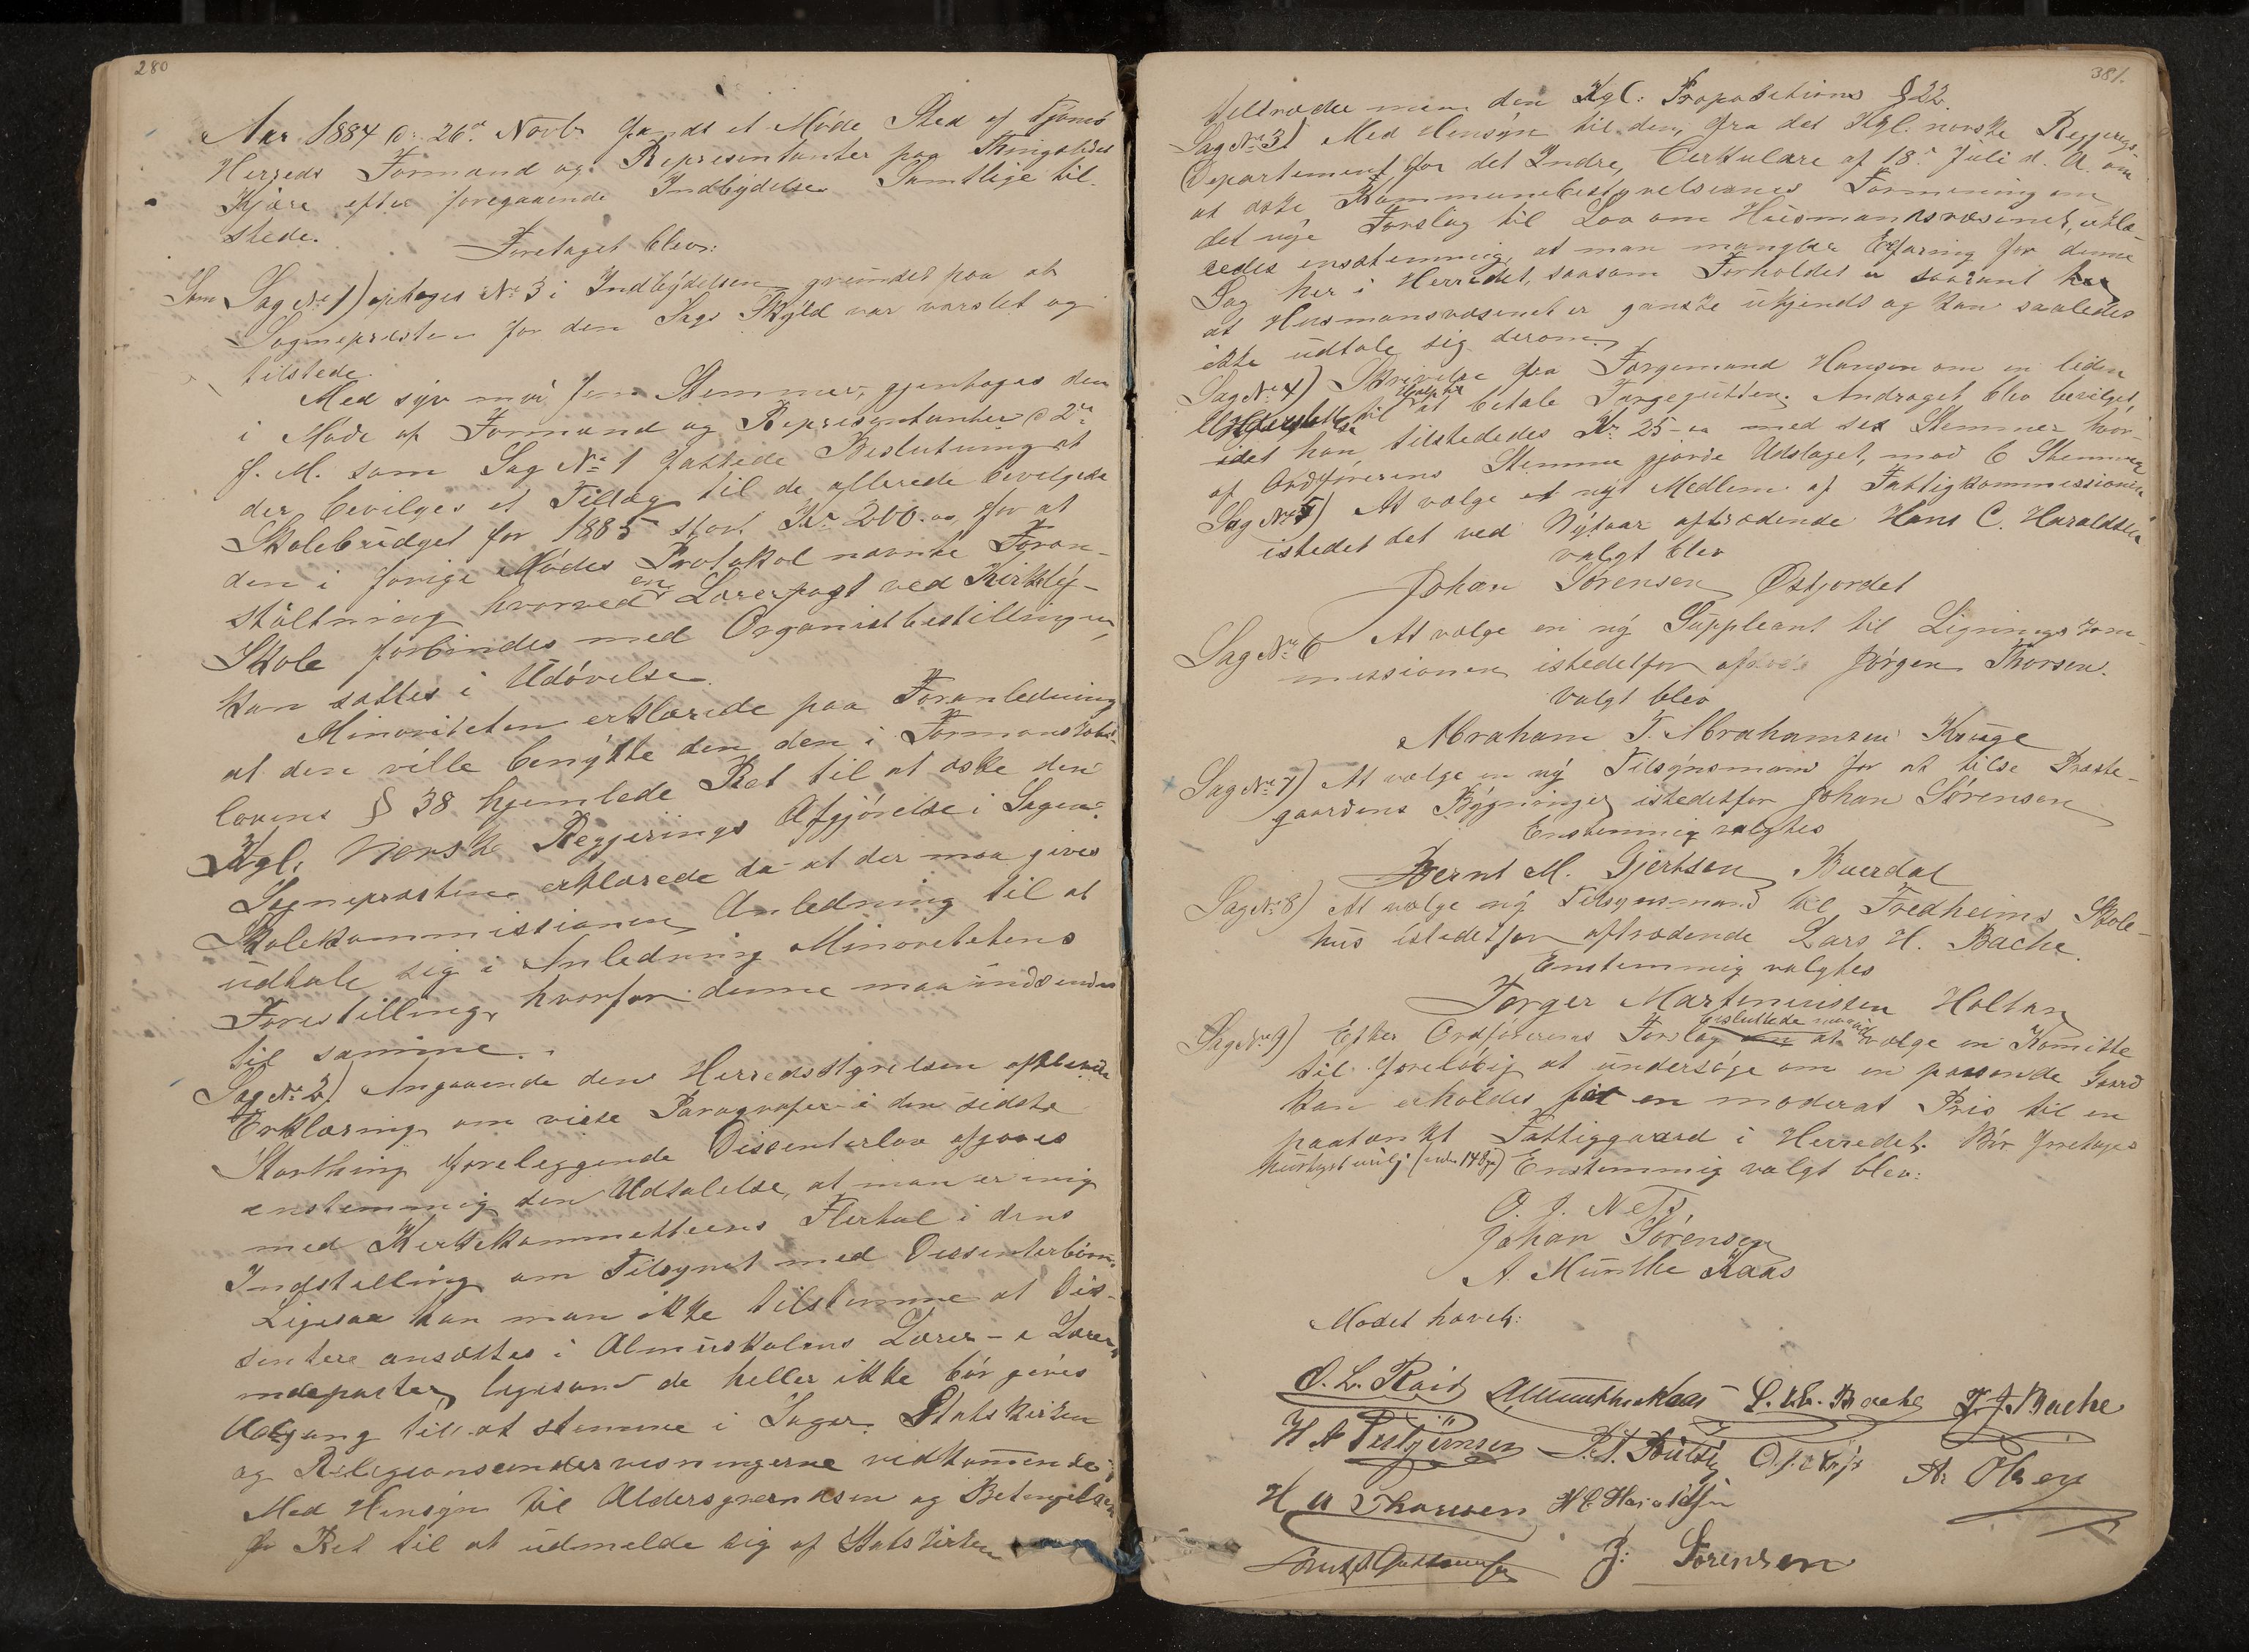 280
Aar 1884 d: 26de Novbr fandt et Møde Sted af Tjømø
Herreds Formænd og Repræsentanter paa Thingstedet
Kjære efter foregaaende Indbydelse. Samtlige til-
stede.
Foretaget blev:
Som Sag No 1) optoges No 3 i Indbydelsen grundet paa at
Sognepræsten for den Sags Skyld var varslet og
tilstede.
Med syv mod fem Stemmer, gjentoges den
i Møde af Formænd og Repræsentanter d 2den
f. M. som Sag No 1 fattede Beslutning at
der bevilges et Tillæg til de allerede bevilgede
Skolebudget for 1885 stort Kr 200.00 for at
den i forige Mødes Protokol nævnte Foran-
staltning hvorved en Lærerpost ved Kirkely-
Skole forbindes med Organistbestillingen,
kan sættes i Udøvelse.
Minoriteten erklærede paa Foranledning
at den vilde benytte den, den i Formandskabs-
lovens § 38 hjemlede Ret til at æske den
Kgl. Norske Regjerings Afgjørelse i Sagen.
Sognepræsten erklærede da at der maa gives
Skolekommissionen Anledning til at
udtale sig i Anledning Minoritetens
Forestilling, hvorfor denne maa indsendes
til samme.
Sag No 2) Angaaende den Herredsstyrelsen afkrævede
Erklæring om visse Paragrafer i den sidste
Storthing foreliggende Dissenterlov afgaves
enstemmig den Udtalelse, at man er enig
med Kirkekommitteens Flertal i dens
Indstilling om Tilsynet med Dissenterbørn.
Ligesaa kan man ikke tilstemme at Dis-
sentere ansættes i Almueskolens Lærer- e Lærer-
indeposter, ligesom de heller ikke bør gives
Adgang til at stemme i Sager Statskirken
og Religionsundervisningerne vidkommende.
Med Hensyn til Aldersgrændsen og Betingelsen
for Ret til at udmelde sig af Statskirken
381.
tiltræder man den Kgl: Propositions § 22.
Sag No 3) Med Hensyn til den, fra det Kgl. norske Regjerings-
Departement for det Indre, Cirkulære af 18de Juli d. A. om
at æske Kommunebestyrelsernes Formening om
det nye Forslag til Lov om Husmandsvæsenet, udta-
ledes enstemmig, at man mangler Erfaring for denne
Sag her i Herredet, saasom Forholdet er saadant
at Husmansvæsenet er ganske ukjendt og kan saaledes
ikke udtale sig derom.
Sag No 4) Skrivelse fra Færgemand Hansen om en liden
Hjælp til at betale Færgegutten. Andraget blev bevilget,
idet han tilstededes Kr 25-00 med sex Stemmer hvor-
af Ordførerens Stemme gjorde Udslaget, mod 6 Stemmer
Sag No 5) At vælge et nyt Medlem af Fattigkommissionen
istedet det ved Nytaar aftrædende Hans C. Haraldsen
valgt blev
Johan Sørensen Østjordet
Sag No 6 At vælge en ny Suppleant til Ligningskom-
missionen istedetfor Jørgen Thorsen.
valgt blev
Abraham T. Abrahamsen Kruge
Sag No 7) At vælge en ny Tilsynsmand for at tilse Præste-
gaardens Bygninger istedetfor Johan Sørensen
Enstemmig valgtes
Bernt M. Gjertsen Buerdal
Sag No 8) At vælge ny Tilsynsmand til Fredheims Skole-
hus istedetfor aftrædende Lars H. Bache.
Enstemmig valgtes
Torger Martiniussen Holtan
Sag No 9) Efter Ordførerens Forslag besluttede man at vælge en Komitte
til foreløbig at undersøge om en passende Gaard
kan erholdes for en moderat Pris til en
paatænkt Fattiggaard i Herredet. Bør foretages
hurtigst mulig (inden 14 Dge) Enstemmig valgt blev:
O. J. Nes
Johan Sørensen
A. Munthe Kaas
Mødet hævet:
O. L. Røid AMuntheKaas L. H. Bache J. J. Bache
H A Thorsen H C Haraldsen A. Olsen
J: Sørensen